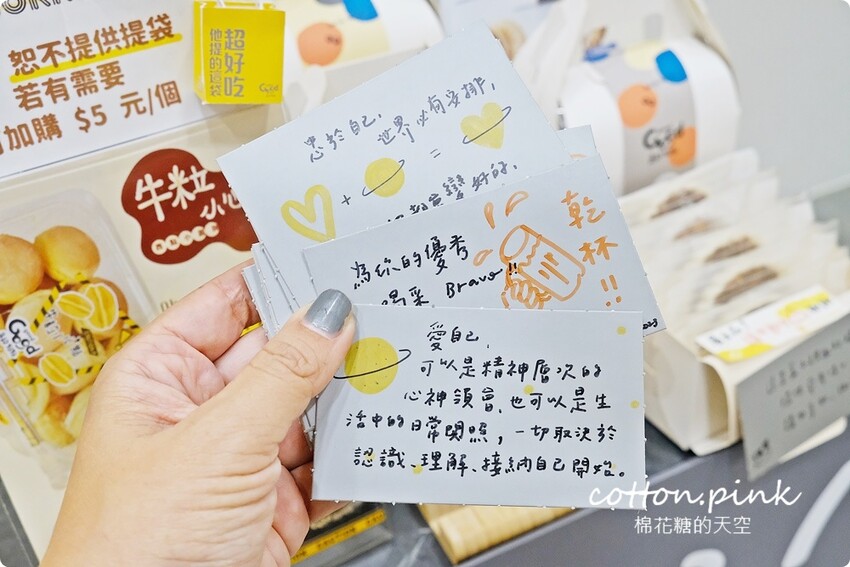 恕不提供提袋
若有需要
加購 $5 元/個
超好吃
他提的這袋
Good
牛粒
小心
Good
忠於自己,
世界必有安排,
+ =
變好的,
乾杯!!
為你的優秀
喝采 Bravo!!
愛自己,
可以是精神層次的
心神領會,也可以是生
活中的日常關照,一切取決於
認識、理解、接納自己開始。
Good
cotton.pink
棉花糖的天空